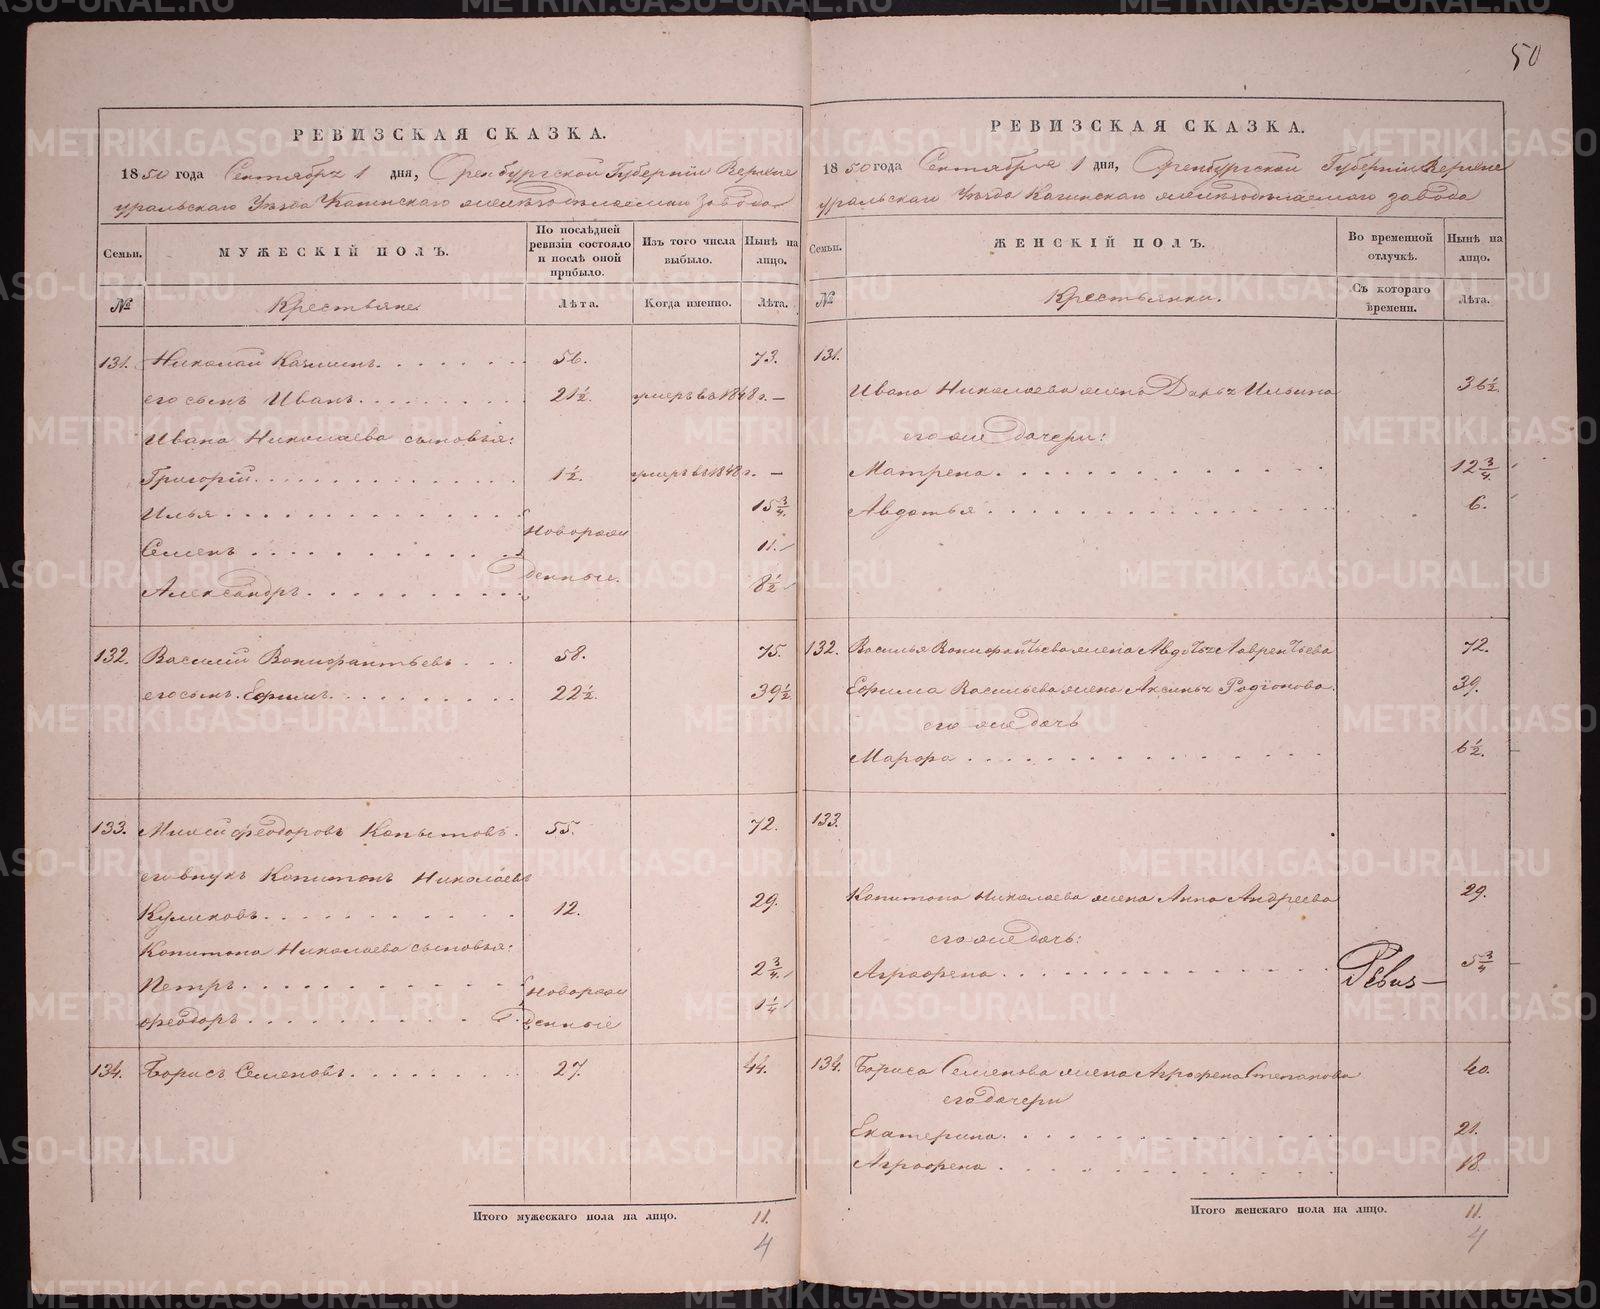 50
РЕВИЗСКАЯ СКАЗКА.
1850 года Сентября 1 дня, Оренбургской Губернии Верхне
уральскаго Уѣзда Кагинскаго желѣзодѣлаемаго завода
Семьи.
МУЖЕСКІЙ ПОЛЪ.
По послѣдней ревизіи состояло и послѣ оной прибыло.
Изъ того числа выбыло.
Нынѣ на лицо.
№
Крестьяне
Лѣта.
Когда именно.
Лѣта.
131. Николай Казминъ. 56. 73.
его сынъ Иванъ. 21½. умеръ въ 1848 г. —
Ивана Николаева сыновья:
Григорій. 1½. умеръ въ 1848 г. —
Илья 15¾.
Новорож
Семенъ 11.
денные.
Александръ. 8½
132. Василій Вонифантьевъ 58. 75.
его сынъ Ефимъ. 22½. 39½
133. Ѳеодоровъ Копытовъ. 55. 72.
его внукъ Капитонъ Николаевъ
Куликовъ. 12. 29.
Капитона Николаева сыновья:
Петръ. 2¾
Новорож
Ѳеодоръ 1¼
денные
134. Борисъ Семеновъ. 27. 44.
Итого мужескаго пола на лицо. 11.
4
РЕВИЗСКАЯ СКАЗКА.
1850 года Сентября 1 дня, Оренбургской Губерніи Верхне
уральскаго Уѣзда Кагинскаго желѣзодѣлаемаго завода
Семьи.
ЖЕНСКІЙ ПОЛЪ.
Во временной отлучкѣ.
Нынѣ на лицо.
№
Крестьянки.
Съ котораго времени.
Лѣта.
131.
Ивана Николаева жена Дарья Ильина 36½.
его же дочери:
Матрена 12¾.
Авдотья 6.
132. Василья Вонифантьева жена Авдотья Лаврентьева 72.
Ефима Васильева жена Аксинья Родіонова. 39.
его же дочь
Марфа 6½.
133.
Капитона Николаева жена Анна Андреева 29.
его же дочь:
Аграфена 5¾
134. Бориса Семенова жена Аграфена Степанова 40.
его дочери
Екатерина. 21.
Аграфена 18.
Итого женскаго пола на лицо. 11.
4
METRIKI.GASO-URAL.RU